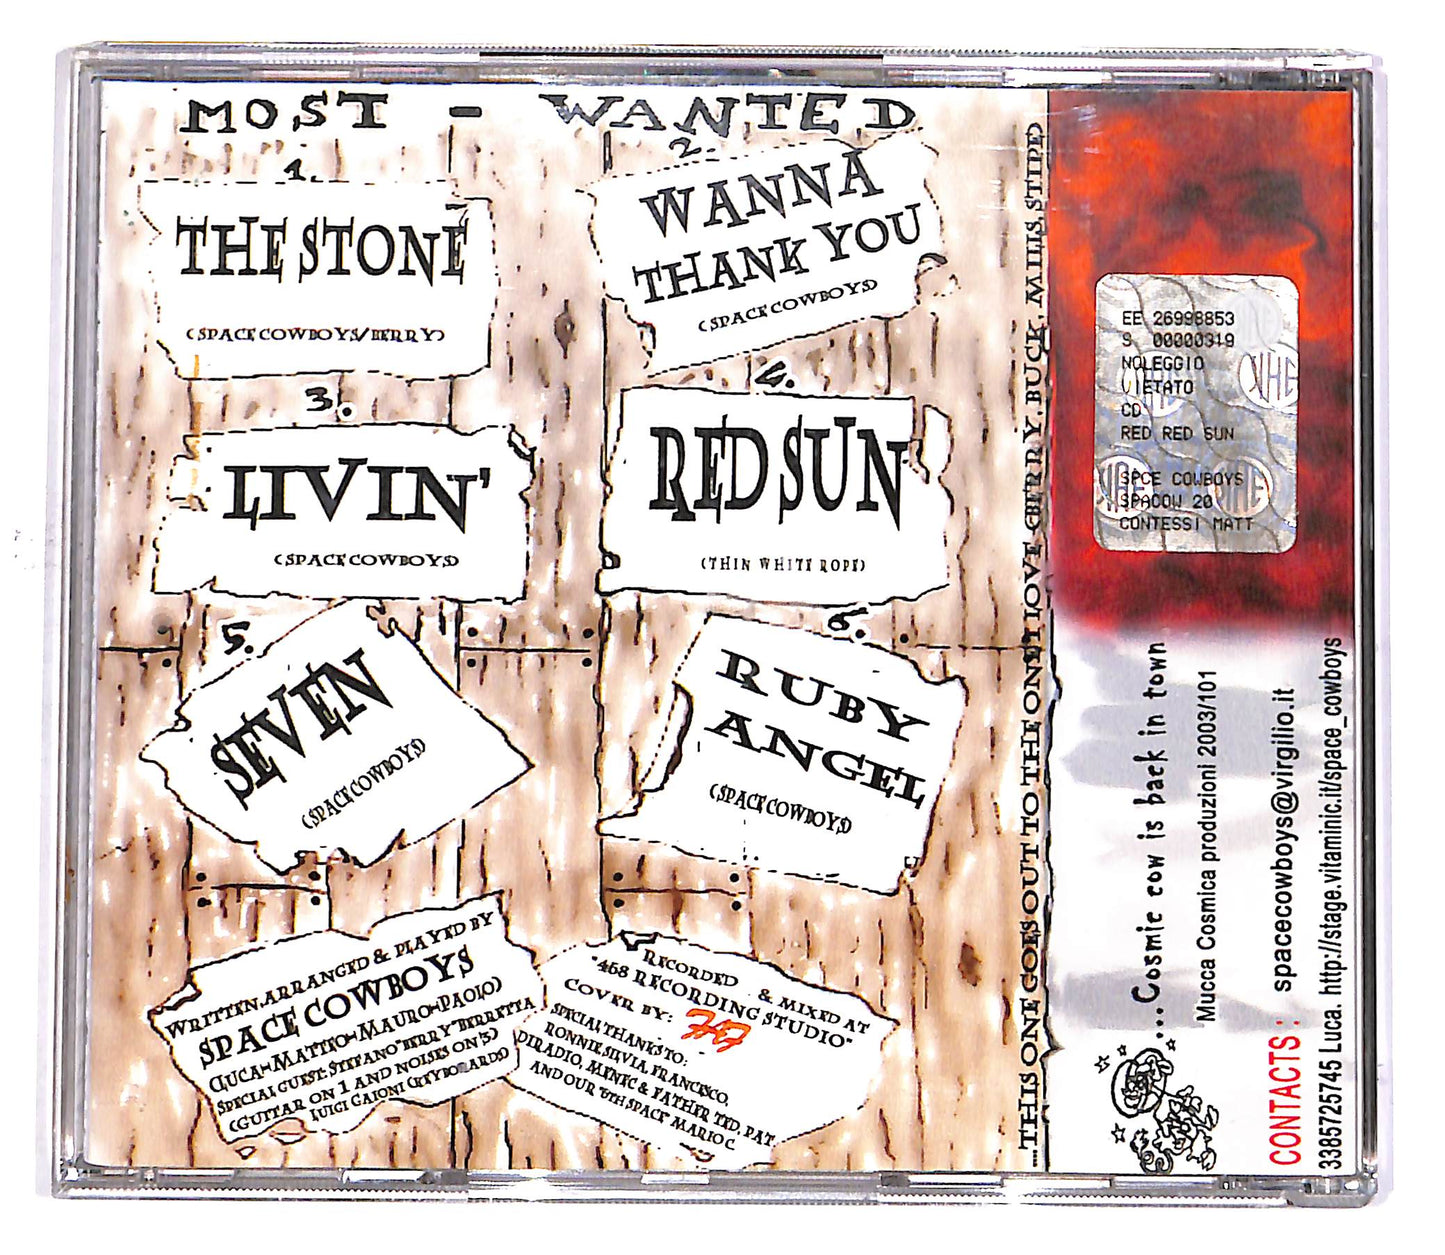 MOST - WANTED
1.
THE STONE
(SPACE COWBOYS/BERRY)
2.
WANNA
THANK YOU
(SPACE COWBOYS)
3.
LIVIN'
(SPACE COWBOYS)
4.
RED SUN
(THIN WHITE ROPE)
5.
SEVEN
(SPACE COWBOYS)
6.
RUBY
ANGEL
(SPACE COWBOYS)
WRITTEN, ARRANGED & PLAYED BY
SPACE COWBOYS
(LUCA-MATTEO-MAURO-PAOLO)
SPECIAL GUEST: STEFANO "BERRY" BERRETTA
(GUITAR ON 1 AND NOISES ON 5)
LUIGI GAIONI (KEYBOARDS)
RECORDED & MIXED AT
"468 RECORDING STUDIO"
COVER BY:
SPECIAL THANKS TO:
RONNIE, SILVIA, FRANCESCO,
DIRADIO, MENIC & FATHER TED, PAT
AND OUR "6TH SPACE" MARIO C.
....THIS ONE GOES OUT TO THE ONE I LOVE (BERRY, BUCK, MILLS, STIPE)
EE 26998853
S 00000319
NOLEGGIO
VIETATO
CD
RED RED SUN
SPCE COWBOYS
SPACOW 20
CONTESSI MATT
....Cosmic cow is back in town
Mucca Cosmica produzioni 2003/101
CONTACTS: spacecowboys@virgilio.it
3385725745 Luca. http://stage.vitaminic.it/space_cowboys